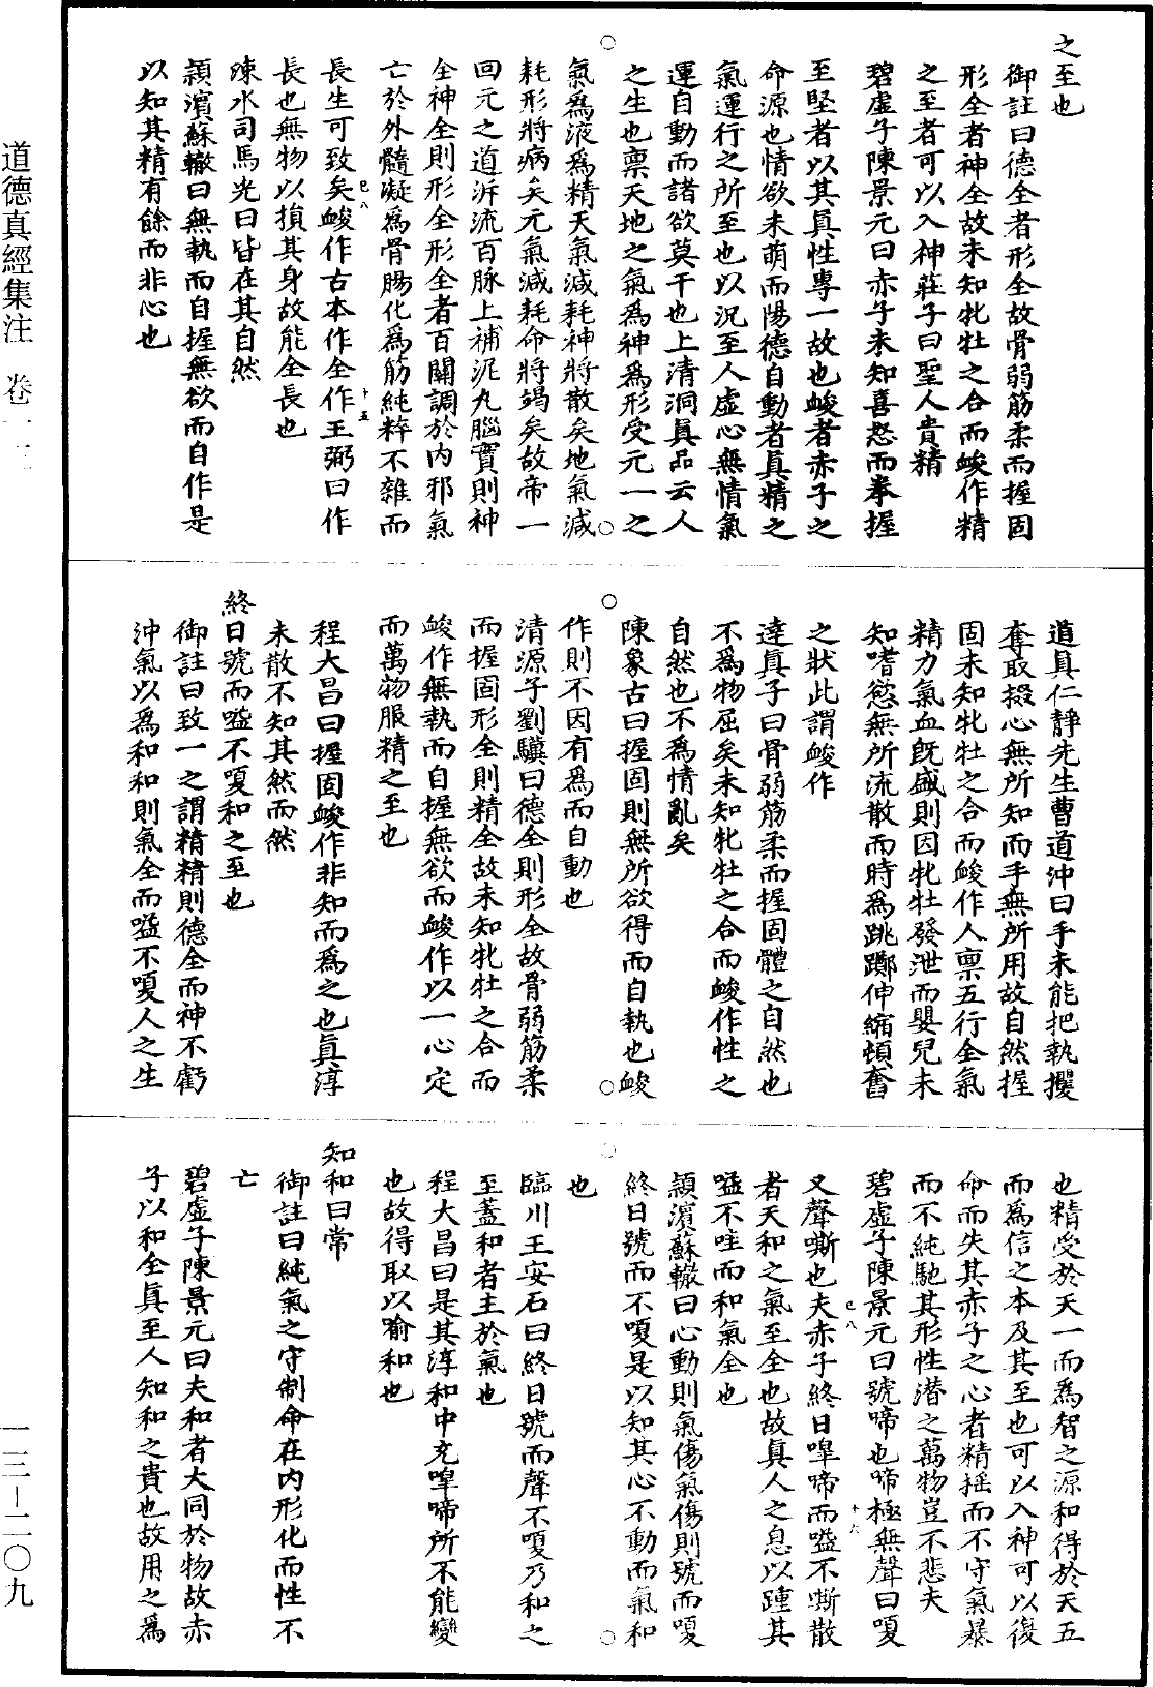 之至也
御註曰德全者形全故骨弱筋柔而握固
形全者神全故未知牝牡之合而㕙作精
之至者可以入神莊子曰聖人貴精
碧虛子陳景元曰赤子未知喜怒而拳握
至堅者以其真性專一故也㕙者赤子之
命源也情欲未萌而陽德自動者真精之
氣運行之所至也以況至人虛心無情氣
運自動而諸欲莫干也上清洞真品云人
之生也稟天地之氣爲神爲形受元一之
氣爲液爲精天氣減耗神將散矣地氣減
耗形將病矣元氣減耗命將竭矣故帝一
回元之道泝流百脉上補泥丸腦實則神
全神全則形全形全者百關調於内邪氣
亡於外髓凝爲骨腸化爲筋純粹不雜而
長生可致矣㕙作古本作全作王弼曰作
長也無物以損其身故能全長也
涑水司馬光曰皆在其自然
潁濱蘇轍曰無執而自握無欲而自作是
以知其精有餘而非心也
道真仁靜先生曹道沖曰手未能把執攫
奪取擬心無所知而手無所用故自然握
固未知牝牡之合而㕙作人稟五行全氣
精力氣血既盛則因牝牡發泄而嬰兒未
知嗜慾無所流散而時爲跳躑伸縮頓奮
之狀此謂㕙作
達真子曰骨弱筋柔而握固體之自然也
不爲物屈矣未知牝牡之合而㕙作性之
自然也不爲情亂矣
陳象古曰握固則無所欲得而自執也㕙
作則不因有爲而自動也
清源子劉驥曰德全則形全故骨弱筋柔
而握固形全則精全故未知牝牡之合而
㕙作無執而自握無欲而㕙作以一心定
而萬物服精之至也
程大昌曰握固㕙作非知而爲之也真淳
未散不知其然而然
終日號而嗌不嗄和之至也
御註曰致一之謂精精則德全而神不虧
沖氣以爲和和則氣全而嗌不嗄人之生
也精受於天一而爲智之源和得於天五
而爲信之本及其至也可以入神可以復
命而失其赤子之心者精揺而不守氣暴
而不純馳其形性潜之萬物豈不悲夫
碧虛子陳景元曰號啼也啼極無聲曰嗄
又聲嘶也夫赤子終日嘷啼而嗌不嘶散
者天和之氣至全也故真人之息以踵其
嗌不哇而和氣全也
潁濱蘇轍曰心動則氣傷氣傷則號而嗄
終日號而不嗄是以知其心不動而氣和
也
臨川王安石曰終日號而聲不嗄乃和之
至蓋和者主於氣也
程大昌曰是其淳和中充嘷啼所不能變
也故得取以喻和也
知和曰常
御註曰純氣之守制命在内形化而性不
亡
碧虛子陳景元曰夫和者大同於物故赤
子以和全真至人知和之貴也故用之爲
道德真經集注 卷
一三－二〇九